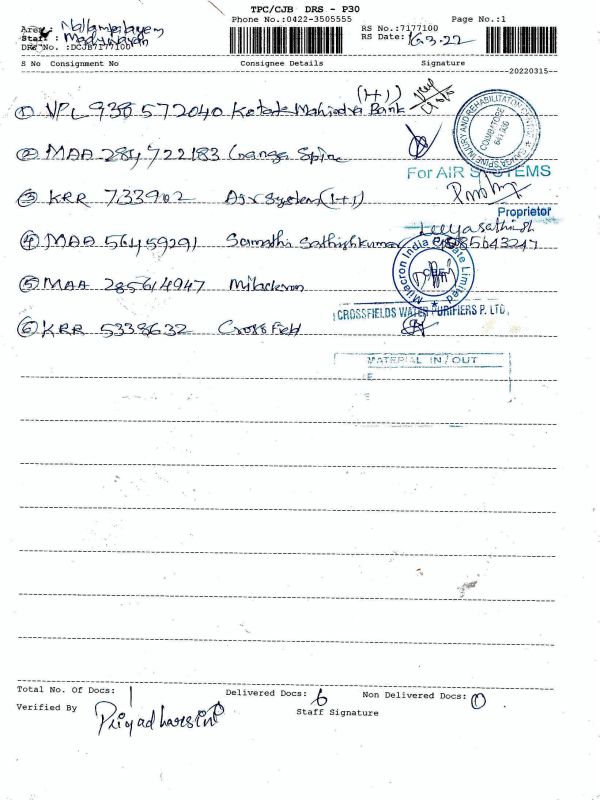 TPC/CJB DRS - P30
Phone No.:0422-3505555 Page No.:1
Area : Nallampalayam RS No.:7177100
Staff : RS Date: 16-3-22
DRS No. :DCJB7177100
S No Consignment No Consignee Details Signature
--20220315--
① VPL 938 572040 Kotak Mahindra Bank (1+1)
② MAA 284722183 Ganga Spine
GANGA SPINE INJURY AND REHABILITATION CENTRE
COIMBATORE
For AIR SYSTEMS
③ KRR 733902 Air System (1+1)
Proprietor
Leeyasathish
④ MAA 564559291 Sumathi Sathishkumar
⑤ MAA 285614947 Milacron
Milacron India Private Limited
CBE
⑥ KRR 5338632 Crossfield
CROSSFIELDS WATER PURIFIERS P. LTD,
MATERIAL IN / OUT
Total No. Of Docs: 1 Delivered Docs: 6 Non Delivered Docs: 0
Verified By Priyadharsini Staff Signature